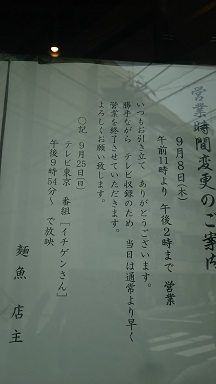 営業時間変更のご案内
9月8日(木)
午前11時より 午後2時まで 営業
いつもお引き立て ありがとうございます。
勝手ながら テレビ収録のため 当日は通常より早く
営業を終了させていただきます。
よろしくお願い致します。
○記 9月25日(日)
テレビ東京 番組 [イチゲンさん]
午後9時54分~ で放映
麺魚 店主